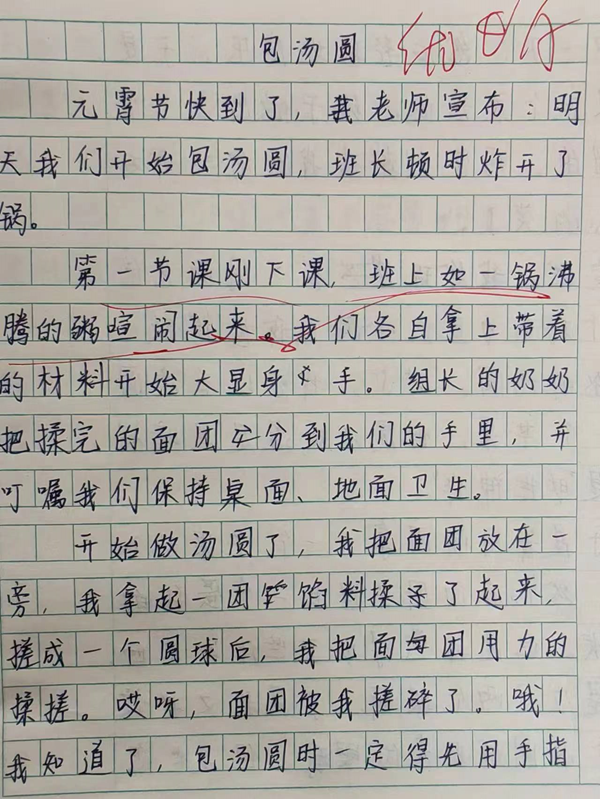 包汤圆
元霄节快到了，我老师宣布：明
天我们开始包汤圆，班长顿时炸开了
锅。
第一节课刚下课，班上如一锅沸
腾的粥喧闹起来。我们各自拿上带着
的材料开始大显身手。组长的奶奶
把揉完的面团分到我们的手里，并
叮嘱我们保持桌面、地面卫生。
开始做汤圆了，我把面团放在一
旁，我拿起一团馅料揉了起来，
搓成一个圆球后，我把面团用力的
揉搓。哎呀，面团被我搓碎了。哦！
我知道了，包汤圆时一定得先用手指